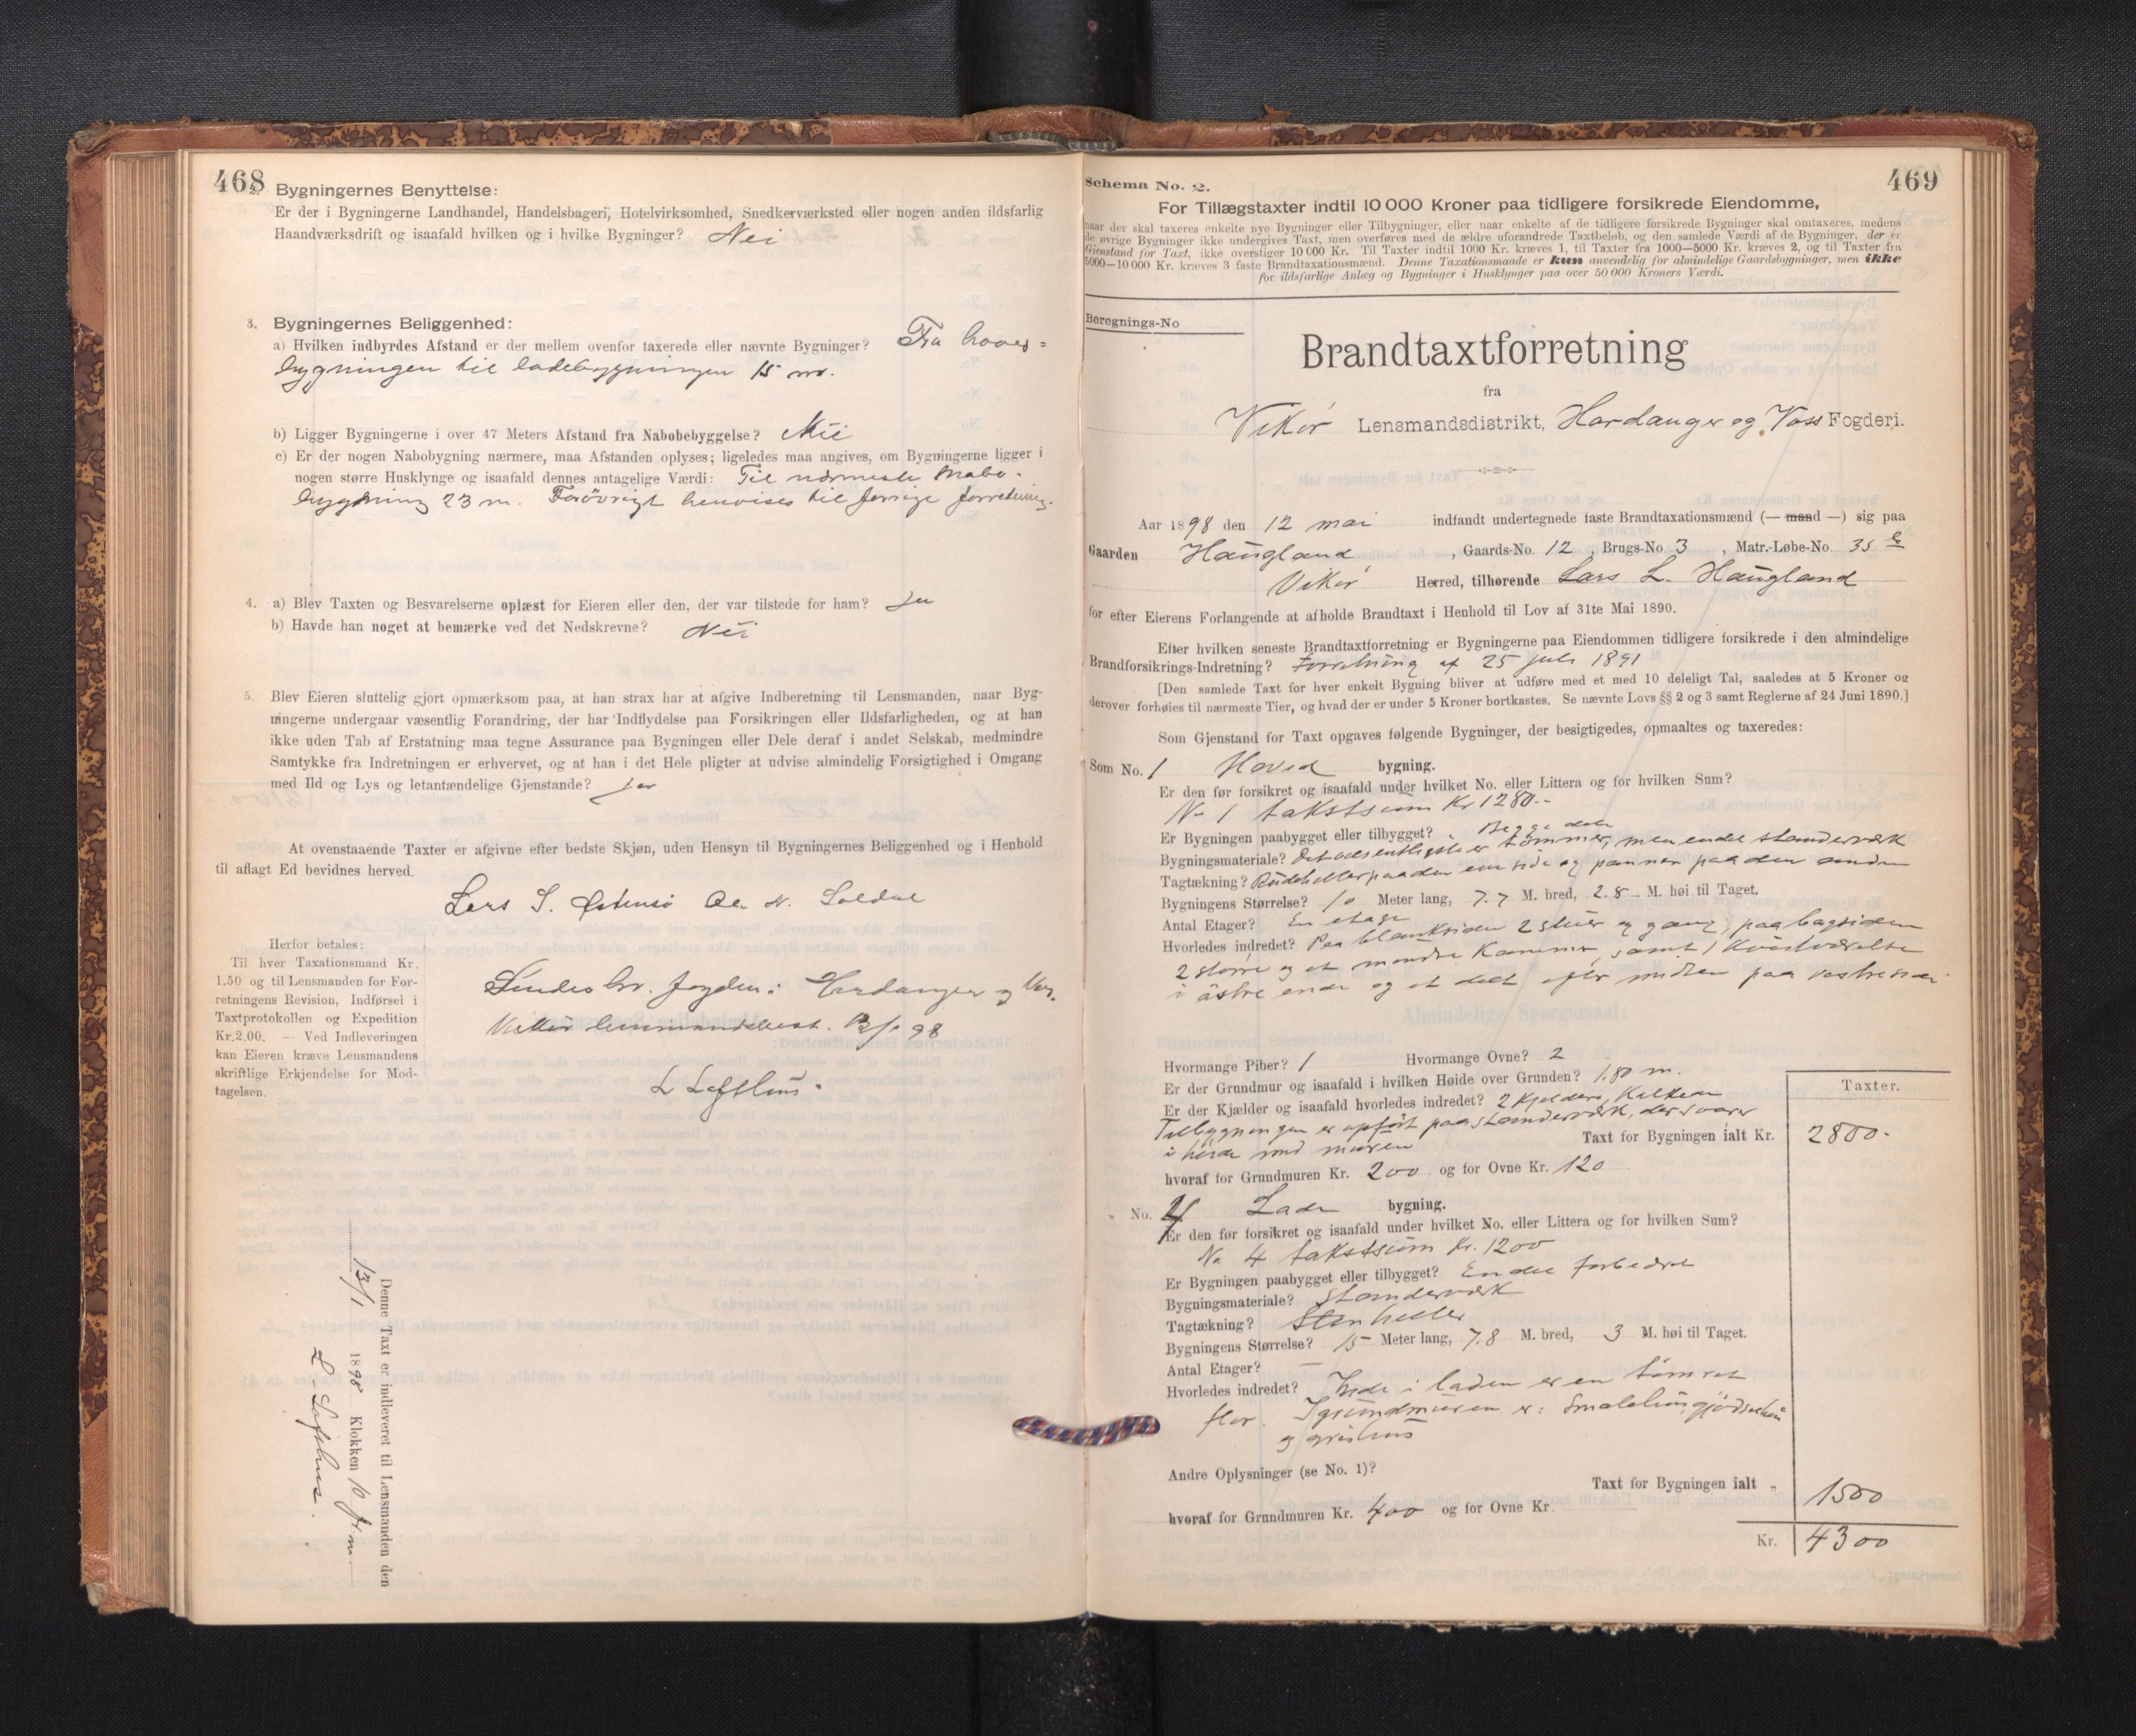 468
2. Bygningernes Benyttelse:
Er der i Bygningerne Landhandel, Handelsbageri, Hotelvirksomhed, Snedkerværksted eller nogen anden ildsfarlig
Haandværksdrift og isaafald hvilken og i hvilke Bygninger? Nei
3. Bygningernes Beliggenhed:
a) Hvilken indbyrdes Afstand er der mellem ovenfor taxerede eller nævnte Bygninger? Fra hoved=
bygningen til ladebygningen 15 m.
b) Ligger Bygningerne i over 47 Meters Afstand fra Nabobebyggelse? Nei
c) Er der nogen Nabobygning nærmere, maa Afstanden oplyses; ligeledes maa angives, om Bygningerne ligger i
nogen større Husklynge og isaafald dennes antagelige Værdi: Til nærmeste Nabo-
bygning 23 m. Forøvrigt henvises til forrige forretning.
4. a) Blev Taxten og Besvarelserne oplæst for Eieren eller den, der var tilstede for ham? Ja
b) Havde han noget at bemærke ved det Nedskrevne? Nei
5. Blev Eieren sluttelig gjort opmærksom paa, at han strax har at afgive Indberetning til Lensmanden, naar Byg-
ningerne undergaar væsentlig Forandring, der har Indflydelse paa Forsikringen eller Ildsfarligheden, og at han
ikke uden Tab af Erstatning maa tegne Assurance paa Bygningen eller Dele deraf i andet Selskab, medmindre
Samtykke fra Indretningen er erhvervet, og at han i det Hele pligter at udvise almindelig Forsigtighed i Omgang
med Ild og Lys og letantændelige Gjenstande? Ja
At ovenstaaende Taxter er afgivne efter bedste Skjøn, uden Hensyn til Bygningernes Beliggenhed og i Henhold
til aflagt Ed bevidnes herved.
Lars S. Østensø
Herfor betales:
Til hver Taxationsmand Kr.
1.50 og til Lensmanden for For-
retningens Revision, Indførsel i
Taxtprotokollen og Expedition
Kr. 2.00. — Ved Indleveringen
kan Eieren kræve Lensmandens
skriftlige Erkjendelse for Mod-
tagelsen.
Sendes hr. fogden i Hardanger og Vos.
Vikør lensmandsbest. 98
L Lofthus.
Denne Taxt er indleveret til Lensmanden den
13/1 1898 Klokken 10 fm.
L Lofthus.
Schema No. 2.
469
For Tillægstaxter indtil 10 000 Kroner paa tidligere forsikrede Eiendomme,
naar der skal taxeres enkelte nye Bygninger eller Tilbygninger, eller naar enkelte af de tidligere forsikrede Bygninger skal omtaxeres, medens
de øvrige Bygninger ikke undergives Taxt, men overføres med de ældre uforandrede Taxtbeløb, og den samlede Værdi af de Bygninger, der er
Gjenstand for Taxt, ikke overstiger 10 000 Kr. Til Taxter indtil 1000 Kr. kræves 1, til Taxter fra 1000—5000 Kr. kræves 2, og til Taxter fra
5000—10 000 Kr. kræves 3 faste Brandtaxationsmænd. Denne Taxationsmaade er kun anvendelig for almindelige Gaardsbygninger, men ikke
for ildsfarlige Anlæg og Bygninger i Husklynger paa over 50 000 Kroners Værdi.
Beregnings-No
Brandtaxtforretning
fra
Vikør Lensmandsdistrikt, Hardanger og Voss Fogderi.
Aar 1898 den 12 mai indfandt undertegnede faste Brandtaxationsmænd (— mand —) sig paa
Gaarden Haugland, Gaards-No. 12, Brugs-No. 3, Matr.-Løbe-No. 35
Vikør Herred, tilhørende Lars L. Haugland
for efter Eierens Forlangende at afholde Brandtaxt i Henhold til Lov af 31te Mai 1890.
Efter hvilken seneste Brandtaxtforretning er Bygningerne paa Eiendommen tidligere forsikrede i den almindelige
Brandforsikrings-Indretning? Forretning af 25 juli 1891
[Den samlede Taxt for hver enkelt Bygning bliver at udføre med et med 10 deleligt Tal, saaledes at 5 Kroner og
derover forhøies til nærmeste Tier, og hvad der er under 5 Kroner bortkastes. Se nævnte Lovs §§ 2 og 3 samt Reglerne af 24 Juni 1890.]
Som Gjenstand for Taxt opgaves følgende Bygninger, der besigtigedes, opmaaltes og taxeredes:
Som No. 1 Hoved bygning.
Er den før forsikret og isaafald under hvilket No. eller Littera og for hvilken Sum?
No 1 takstsum Kr. 1280.-
Er Bygningen paabygget eller tilbygget? Begge dele
Bygningsmateriale? Det væsentligste er tømmer, men endel standerværk
Tagtækning? Rudeheller paa den ene side og panner paa den anden
Bygningens Størrelse? 10 Meter lang, 7.7 M. bred, 2.8 M. høi til Taget.
Antal Etager? En etage
Hvorledes indredet? Paa blanksiden 2 stuer og gang, paa bagsiden
2 større og et mindre kammer, samt 1 kvistværelse
i østre ende og et dito efter midten paa vestre
Hvormange Piber? 1 Hvormange Ovne? 2
Er der Grundmur og isaafald i hvilken Høide over Grunden? 1.80 m.
Er der Kjælder og isaafald hvorledes indredet? 2 Kjeldere,
Tilbygningen er opført paa standerværk, der svarer
i høide med muren
Taxt for Bygningen ialt Kr.
Taxter.
2800.
hvoraf for Grundmuren Kr. 200 og for Ovne Kr. 120
" No. 4 Lade bygning.
Er den før forsikret og isaafald under hvilket No. eller Littera og for hvilken Sum?
No 4 takstsum Kr. 1200
Er Bygningen paabygget eller tilbygget? Endel forbedret
Bygningsmateriale? Standerværk
Tagtækning? Stenheller
Bygningens Størrelse? 15 Meter lang, 7.8 M. bred, 3 M. høi til Taget.
Antal Etager? —
Hvorledes indredet? Inde i laden er en tømret
flor. I grundmuren er: Smalehus, gjødselhus
og grishus
Andre Oplysninger (se No. 1)?
Taxt for Bygningen ialt „ 1500
hvoraf for Grundmuren Kr. 400 og for Ovne Kr.
Kr. 4300